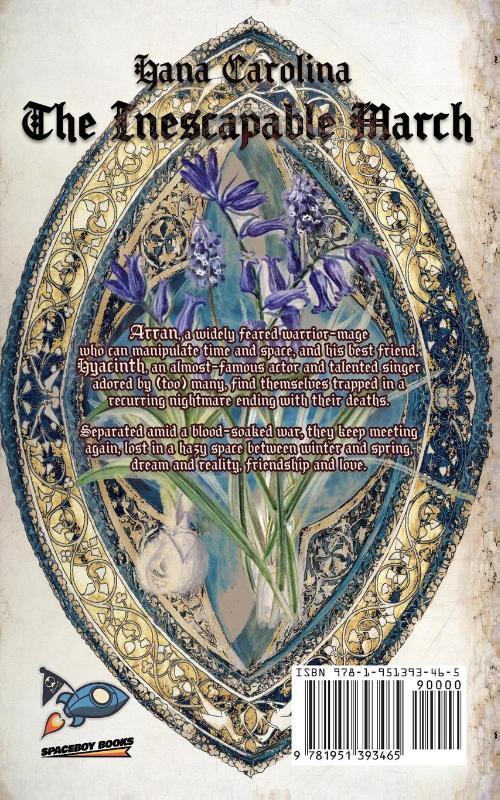 Hana Carolina
The Inescapable March
Arran, a widely feared warrior-mage
who can manipulate time and space, and his best friend,
Hyacinth, an almost-famous actor and talented singer
adored by (too) many, find themselves trapped in a
recurring nightmare ending with their deaths.
Separated amid a blood-soaked war, they keep meeting
again, lost in a hazy space between winter and spring,
dream and reality, friendship and love.
SPACEBOY BOOKS
ISBN 978-1-951393-46-5
90000
9 781951 393465